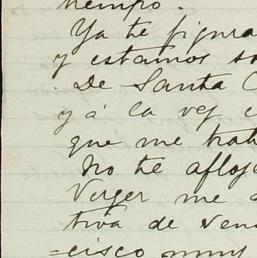 tiempo.
Ya te figura
y estamos so
De Santa C
y á la vez e
que me trat
No te afloje
Verger me a
tiva de ven
=cisco muy